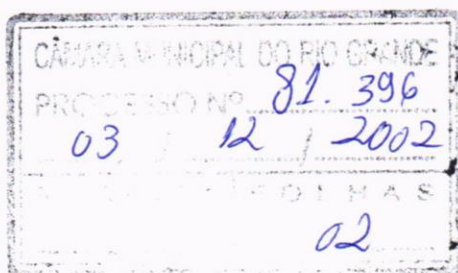 CÂMARA MUNICIPAL DO RIO GRANDE
PROCESSO Nº 81.396
03 / 12 / 2002
FOLHAS
02